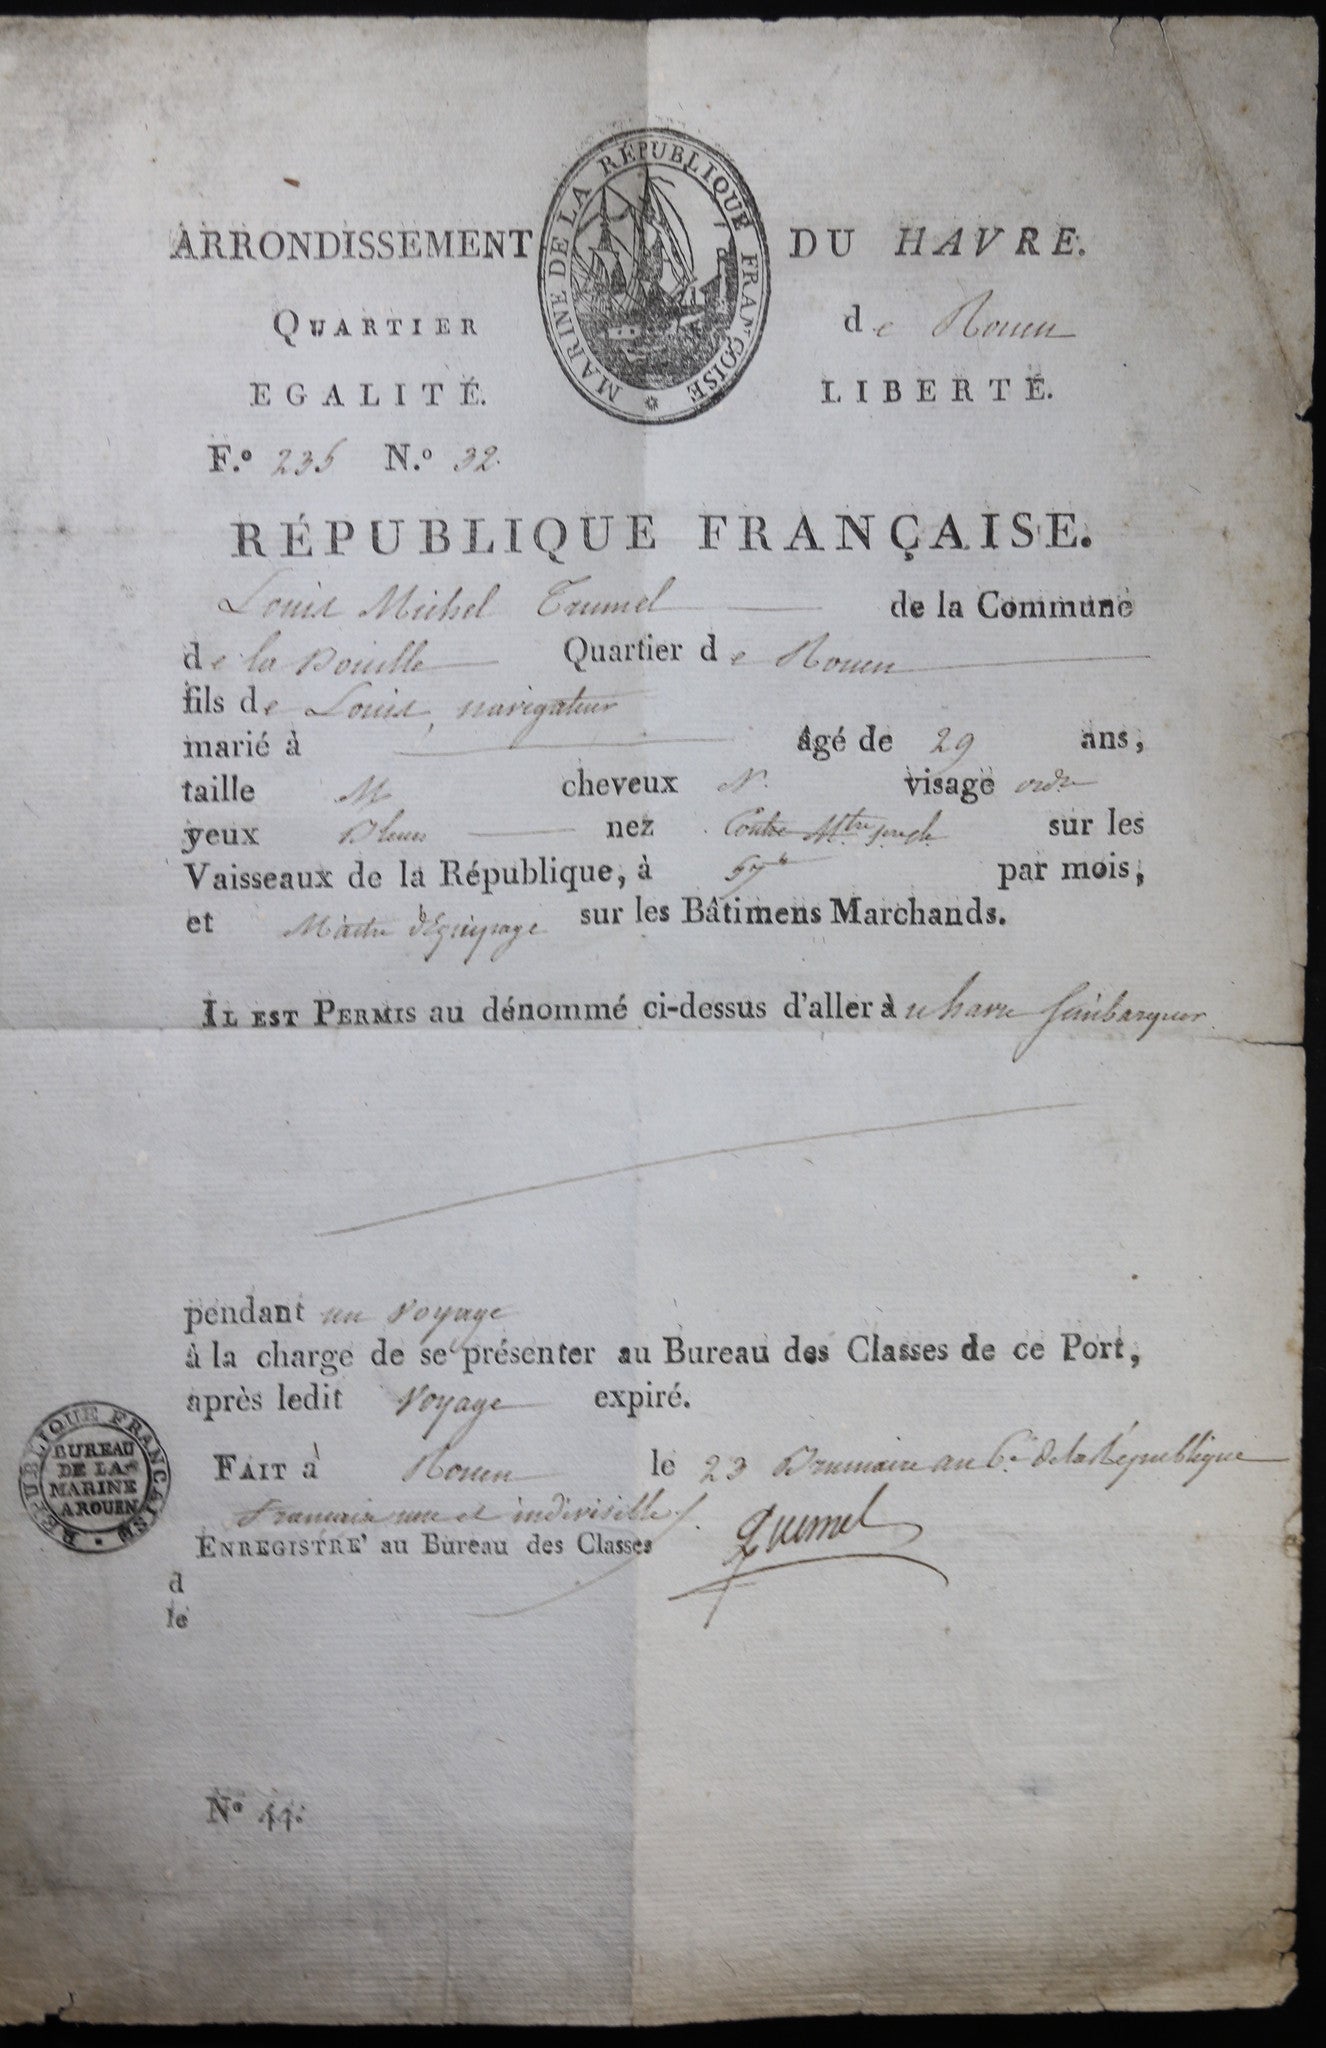 MARINE DE LA RÉPUBLIQUE FRANÇOISE
ARRONDISSEMENT DU HAVRE.
QUARTIER de Rouen
EGALITÉ. LIBERTÉ.
F.º 235 N.º 32.
RÉPUBLIQUE FRANÇAISE.
Louis Michel de la Commune
de la Bouille Quartier de Rouen
fils de Louis, navigateur
marié à âgé de 29 ans,
taille M cheveux N. visage ordre
yeux Bleus nez Contre Mtre sur les
Vaisseaux de la République, à 57 par mois,
et Maitre d'Equipage sur les Bâtimens Marchands.
IL EST PERMIS au dénommé ci-dessus d'aller au havre s'embarquer
pendant un voyage
à la charge de se présenter au Bureau des Classes de ce Port,
après ledit voyage expiré.
FAIT à Rouen le 23 Brumaire an 6.e de la République
Française une et indivisible
ENREGISTRÉ au Bureau des Classes
d
le
RÉPUBLIQUE FRANCAISE
BUREAU
DE LA
MARINE
A ROUEN
Nº 44.